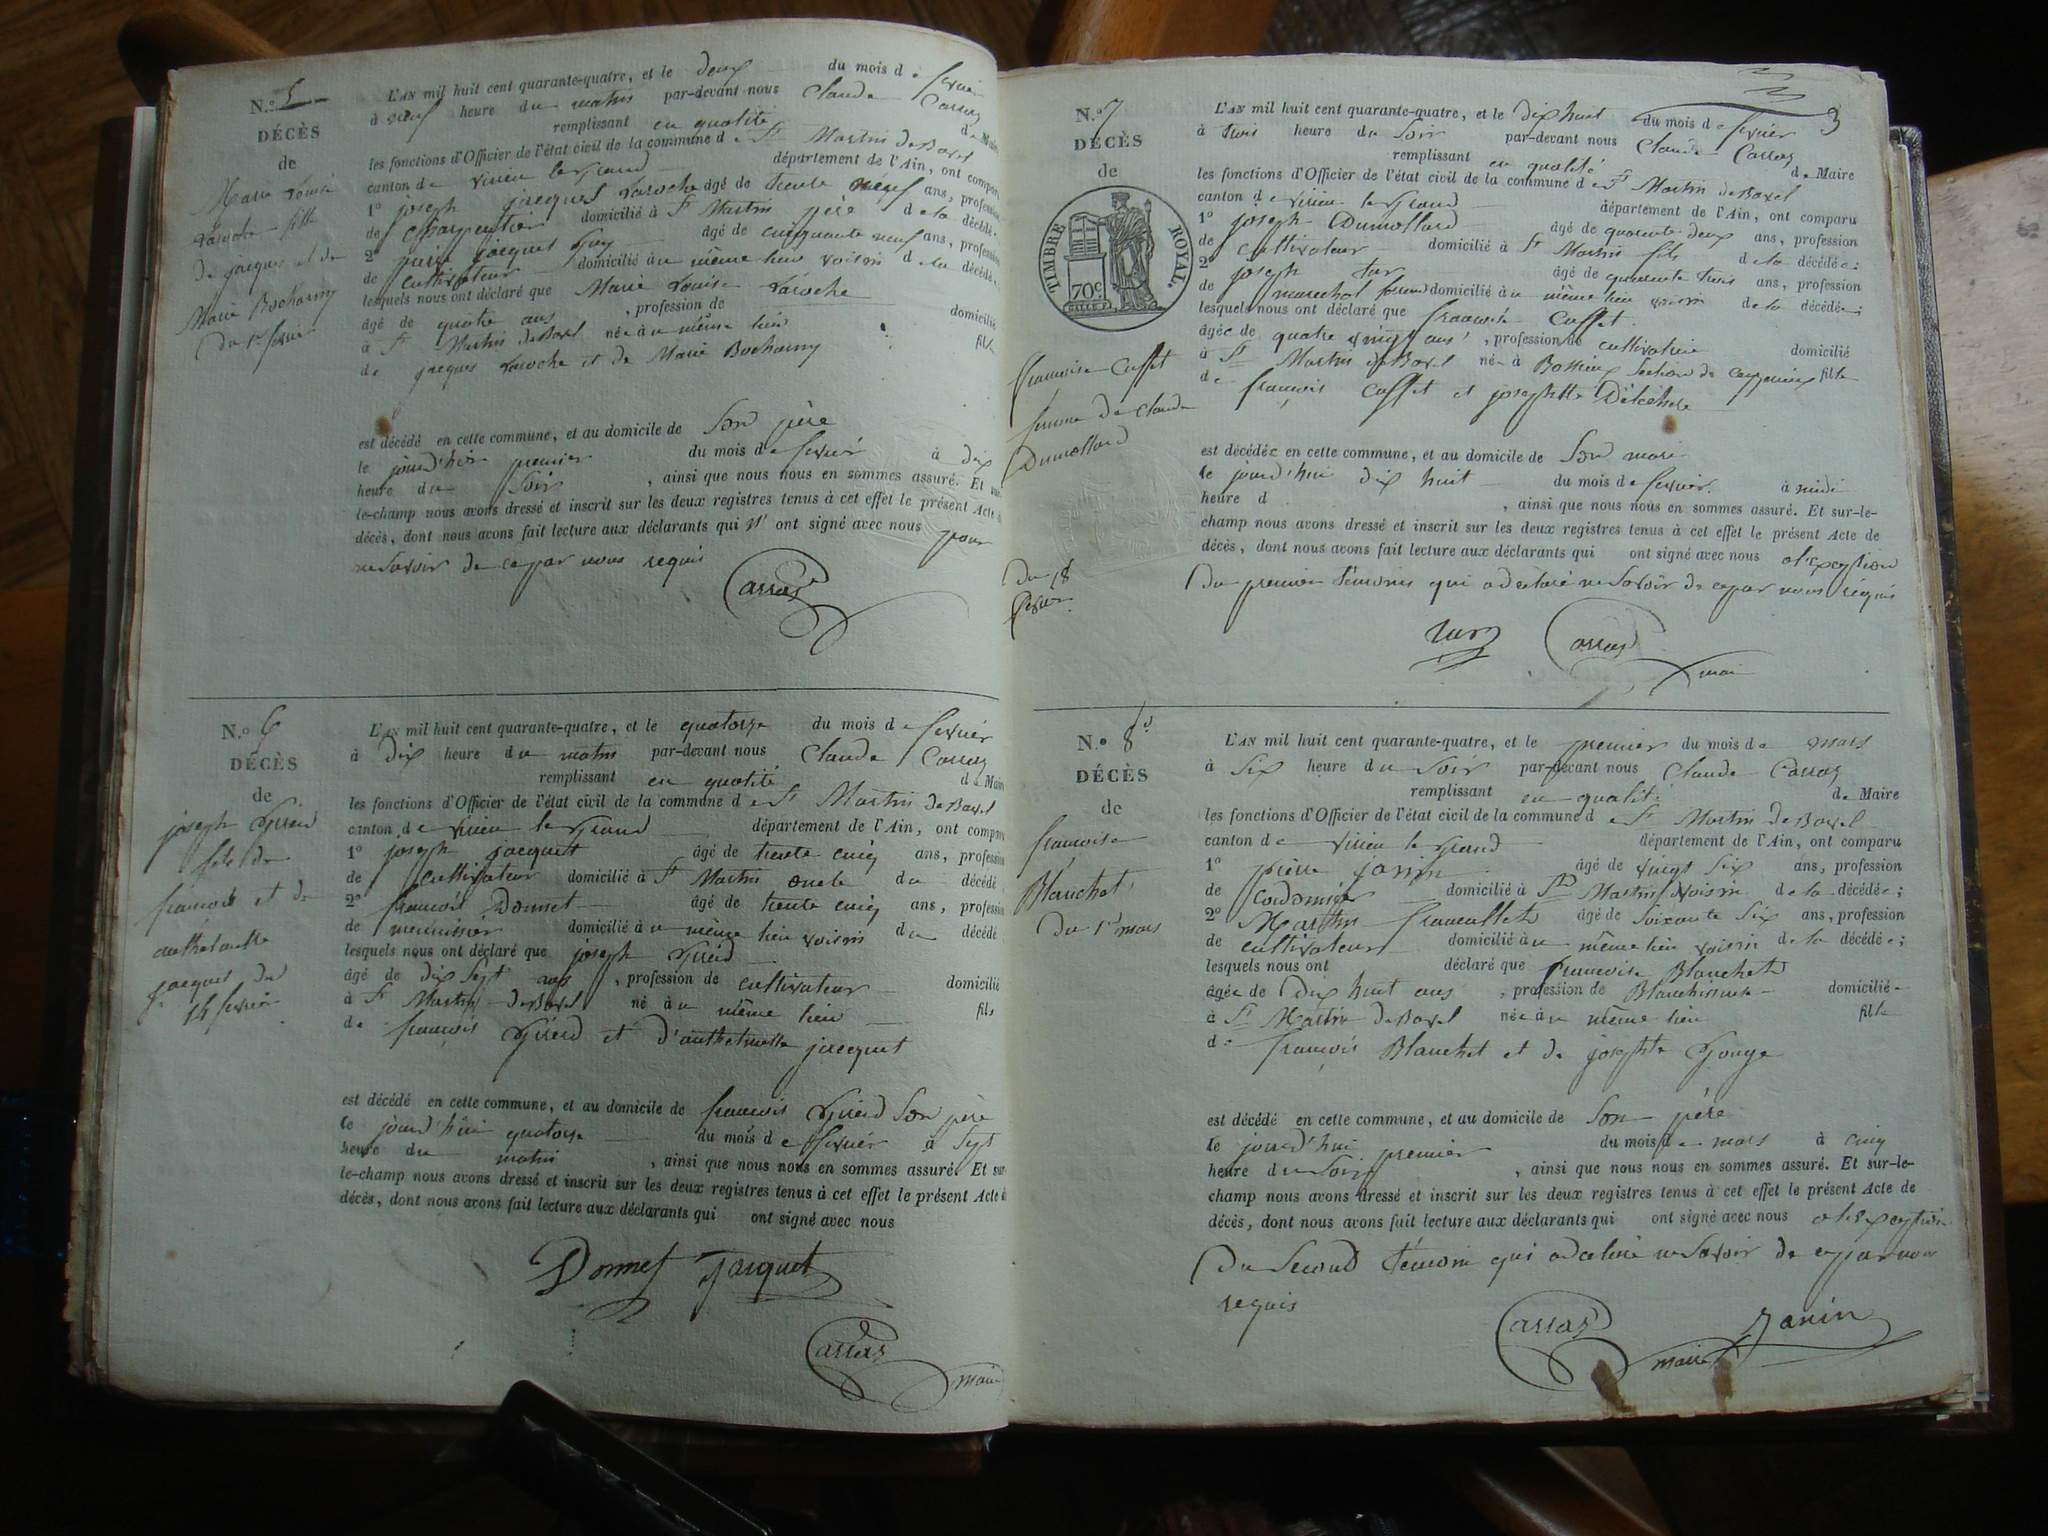 N.o 5
DÉCÈS
de
Marie Louise
Laroche fille
de jacques et de
Marie Bocharny
Du 1er fevrier
L'AN mil huit cent quarante-quatre, et le deux du mois de fevrier
à neuf heure du matin par-devant nous Claude Carraz
remplissant en qualité de Maire
les fonctions d'Officier de l'état civil de la commune de St Martin de Bavel
canton de virieu le Grand département de l'Ain, ont comparu
1o joseph jacques Laroche âgé de trente neuf ans, profession
de charpentier domicilié à St Martin père de la décédé.
2o jacquet Guy âgé de cinquante neuf ans, profession
de cultivateur domicilié au même lieu voisin de la décédé,
lesquels nous ont déclaré que Marie Louise Laroche
âgé de quatre ans , profession de domicilié
à St Martin de Bavel née au même lieu fille
de jacques Laroche et de Marie Bocharny
est décédé en cette commune, et au domicile de Son père
le jourd'hier premier du mois de fevrier à dix
heure du Soir , ainsi que nous nous en sommes assuré. Et sur-
le-champ nous avons dressé et inscrit sur les deux registres tenus à cet effet le présent Acte de
décès, dont nous avons fait lecture aux déclarants qui n' ont signé avec nous pour
ne Savoir de ce par nous requis
Carraz
N.o 6
DÉCÈS
de
joseph
fils de
francois et de
anthelmette
jacquet du
14 fevrier
L'AN mil huit cent quarante-quatre, et le quatorze du mois de fevrier
à dix heure du matin par-devant nous Claude Carraz
remplissant en qualité de Maire
les fonctions d'Officier de l'état civil de la commune de St Martin de Bavel
canton de virieu le Grand département de l'Ain, ont comparu
1o joseph jacquet âgé de trente cinq ans, profession
de cultivateur domicilié à St Martin oncle du décédé
2o francois Donnet âgé de trente cinq ans, profession
de meunier domicilié au même lieu voisin du décédé
lesquels nous ont déclaré que joseph
âgé de dix Sept ans , profession de cultivateur domicilié
à St Martin de Bavel né au même lieu fils
de françois et d'anthelmette jacquet
est décédé en cette commune, et au domicile de francois Son père
le jourd'hui quatorze du mois de fevrier à Sept
heure du matin , ainsi que nous nous en sommes assuré. Et sur-
le-champ nous avons dressé et inscrit sur les deux registres tenus à cet effet le présent Acte de
décès, dont nous avons fait lecture aux déclarants qui ont signé avec nous
Donnet Jacquet
Carraz
maire
3
N.o 7
DÉCÈS
de
TIMBRE ROYAL.
70c
francoise Cusset
femme de Claude
Dumollard
Du 18
fevrier
L'AN mil huit cent quarante-quatre, et le dix huit du mois de fevrier
à trois heure du Soir par-devant nous Claude Carraz
remplissant en qualité de Maire
les fonctions d'Officier de l'état civil de la commune de St Martin de Bavel
canton de virieu le Grand département de l'Ain, ont comparu
1o joseph Dumollard âgé de quarente deux ans, profession
de cultivateur domicilié à St Martin fils de la décédée;
2o joseph âgé de quarente trois ans, profession
de marechal domicilié au même lieu voisin de la décédée;
lesquels nous ont déclaré que francoise Cusset
âgée de quatre vingt ans , profession de cultivatrice domicilié
à St Martin de Bavel née à Section de fille
de françois Cusset et josephte
est décédée en cette commune, et au domicile de Son mari
le jourd'hui dix huit du mois de fevrier à midi
heure d , ainsi que nous nous en sommes assuré. Et sur-le-
champ nous avons dressé et inscrit sur les deux registres tenus à cet effet le présent Acte de
décès, dont nous avons fait lecture aux déclarants qui ont signé avec nous a l'exception
Du premier témoins qui a déclaré ne Savoir de ce par nous requis
Carraz
maire
N.o 8
DÉCÈS
de
francoise
Blanchet
Du 1er mars
L'AN mil huit cent quarante-quatre, et le premier du mois de mars
à Six heure du Soir par-devant nous Claude Carraz
remplissant en qualité de Maire
les fonctions d'Officier de l'état civil de la commune de St Martin de Bavel
canton de virieu le Grand département de l'Ain, ont comparu
1o pierre janin âgé de vingt Six ans, profession
de Cordonnier domicilié à St Martin voisin de la décédée;
2o Martin âgé de Soixante Six ans, profession
de cultivateur domicilié au même lieu voisin de la décédée;
lesquels nous ont déclaré que francoise Blanchet
âgée de Dix huit ans , profession de Blanchisseuse domiciliée
à St Martin de Bavel née au même lieu fille
de françois Blanchet et de josephte Gouge
est décédé en cette commune, et au domicile de Son père
le jourd'hui premier du mois de mars à cinq
heure du Soir , ainsi que nous nous en sommes assuré. Et sur-le-
champ nous avons dressé et inscrit sur les deux registres tenus à cet effet le présent Acte de
décès, dont nous avons fait lecture aux déclarants qui ont signé avec nous a l'exception
Du Second témoin qui a declaré ne Savoir de ce par nous
requis
Carraz Janin
maire